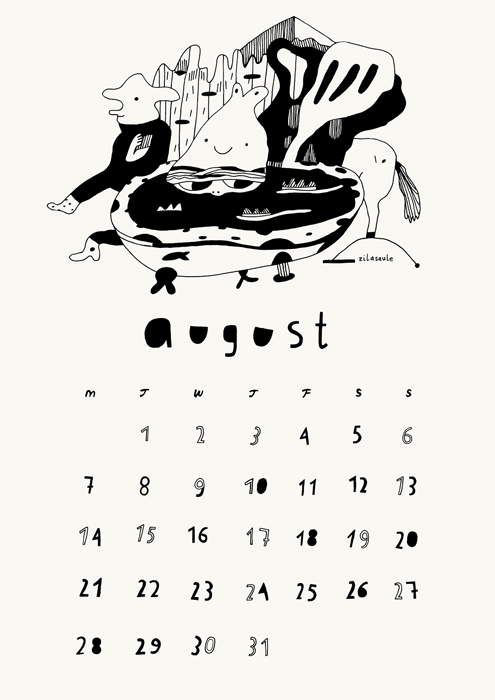 zilasaule
august
M T W T F S S
1 2 3 4 5 6
7 8 9 10 11 12 13
14 15 16 17 18 19 20
21 22 23 24 25 26 27
28 29 30 31